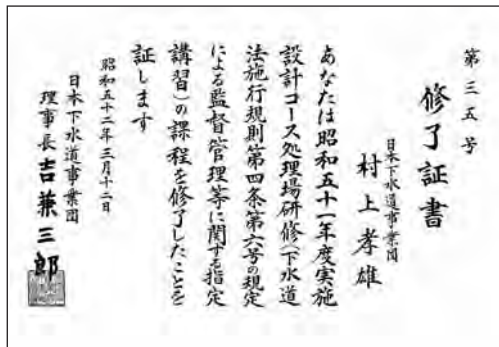 第三五号
修了証書
日本下水道事業団
村上孝雄
あなたは昭和五十一年度実施
設計コース処理場研修(下水道
法施行規則第四条第六号の規定
による監督管理等に関する指定
講習)の課程を修了したことを
証します
昭和五十二年三月十二日
日本下水道事業団
理事長吉兼三郎